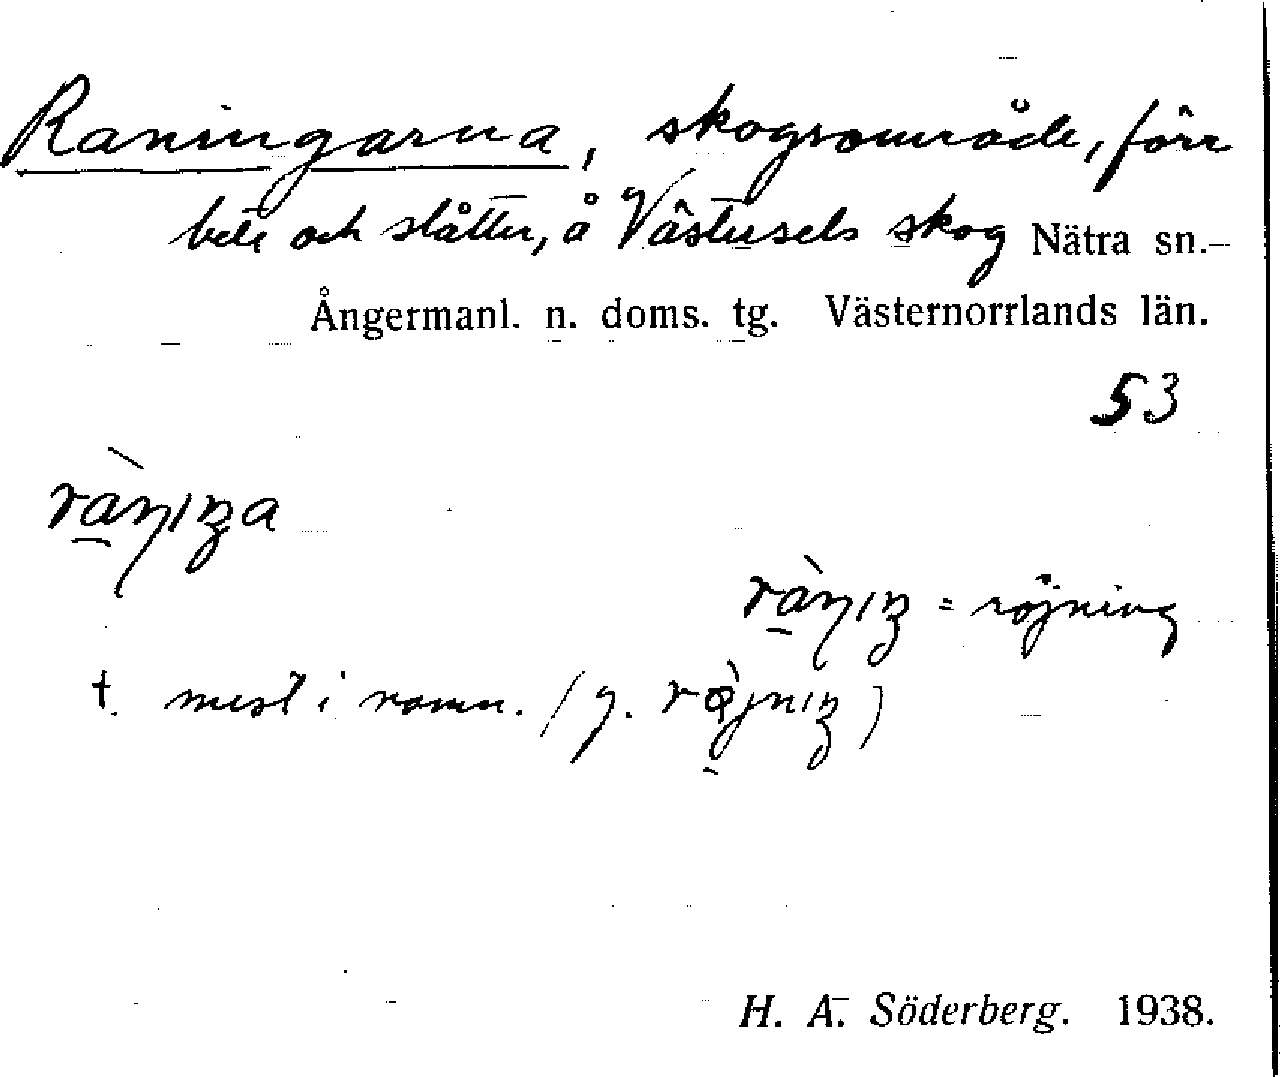 Raningarna, skogsområde, förr
bete och slåtter, å Västersels skog Nätra sn.–
Ångermanl. n. doms. tg. Västernorrlands län.
53
= röjning
t. mest i namn. (y.
H. A. Söderberg. 1938.